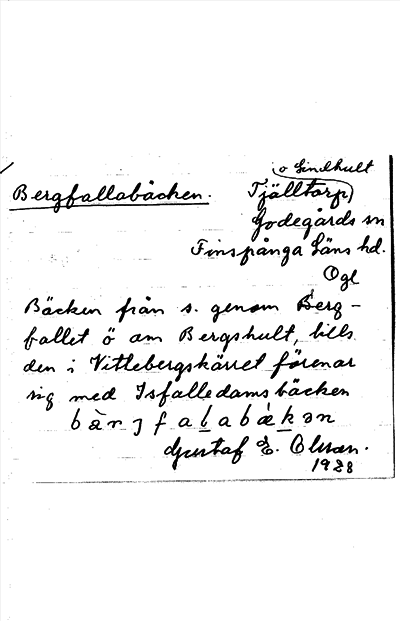 o Lindhult
Bergfallabäcken. Tjälltorp)
Godegårds sn
Finspånga Läns hd.
Ögl
Bäcken från s. genom Berg-
fallet ö om Bergshult, tills
den i Vittlebergskärret förenar
sig med Isfalledamsbäcken
Gustaf E. Olsson.
1928